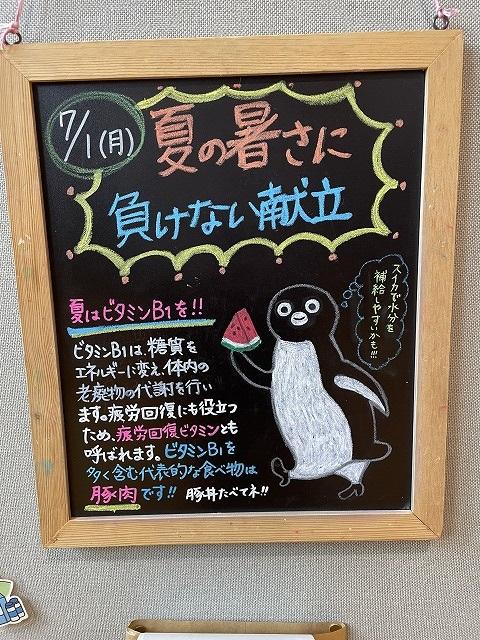 7/1(月)
夏の暑さに
負けない献立
スイカで水分を
補給しやすいかも!!!
夏はビタミンB1を!!
ビタミンB1は、糖質を
エネルギーに変え、体内の
老廃物の代謝を行い
ます。疲労回復にも役立つ
ため、疲労回復ビタミンとも
呼ばれます。ビタミンB1を
多く含む代表的な食べ物は
豚肉です!! 豚丼たべてネ!!